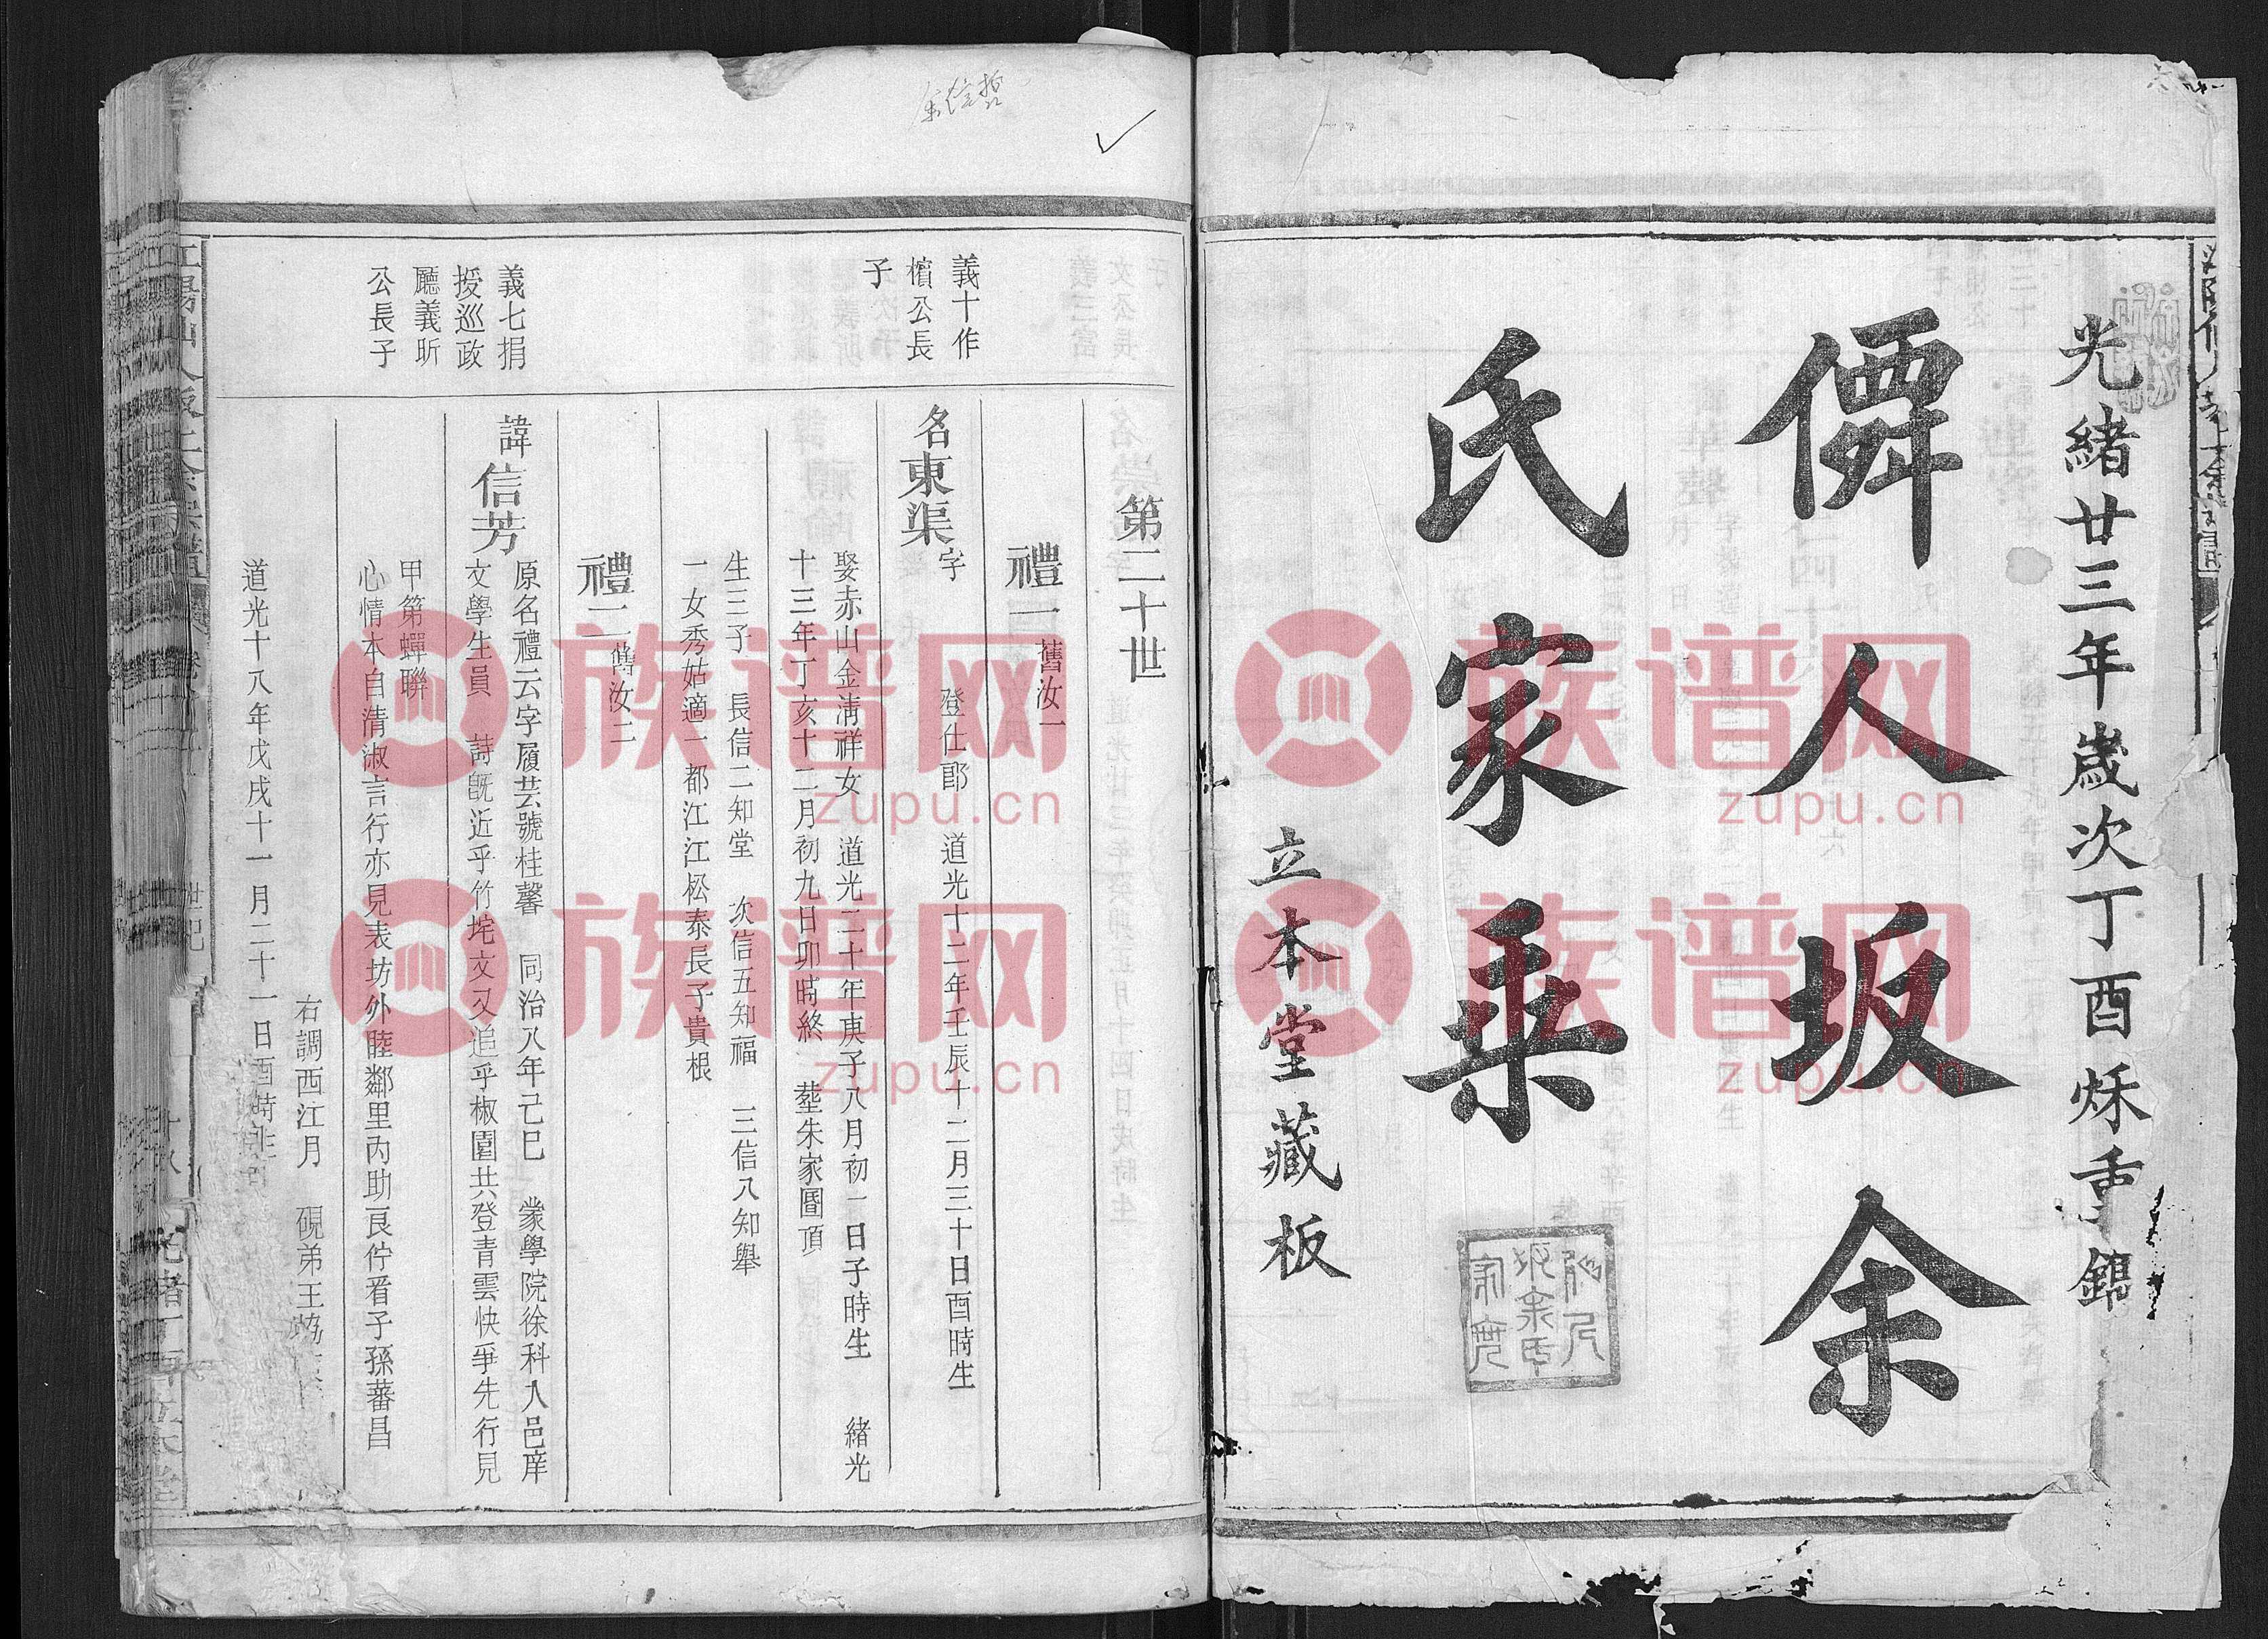 光緒廿三年歲次丁酉穌重鐫
僲人坂余
氏家乗
立本堂藏板
第二十世
禮一 舊汝一
義十作
檟公長
子
名東渠 字 登仕郎 道光十二年壬辰十二月三十日酉時生
娶赤山金清祥女 道光二十年庚子八月初一日子時生 緒光
十三年丁亥十二月初九日卯時終 塟朱家圖頂
生三子 長信二知堂 次信五知福 三信八知舉
一女秀姑適一都江江松泰長子貴根
禮二 舊汝二
義七捐
授巡政
廳義昕
公長子
諱信芳 原名禮云字履芸號桂馨 同治八年己巳 蒙學院徐科入邑庠
文學生員 詩既近乎竹垞文又追乎椒園共登青雲快爭先行見
甲第蟬聯
心情本自清淑言行亦見表坊外睦鄰里內助良佇看子孫蕃昌
右調西江月 硯弟王
道光十八年戊戌十一月二十一日酉時
族谱网
zupu.cn
族谱网
zupu.cn
族谱网
zupu.cn
族谱网
zupu.cn